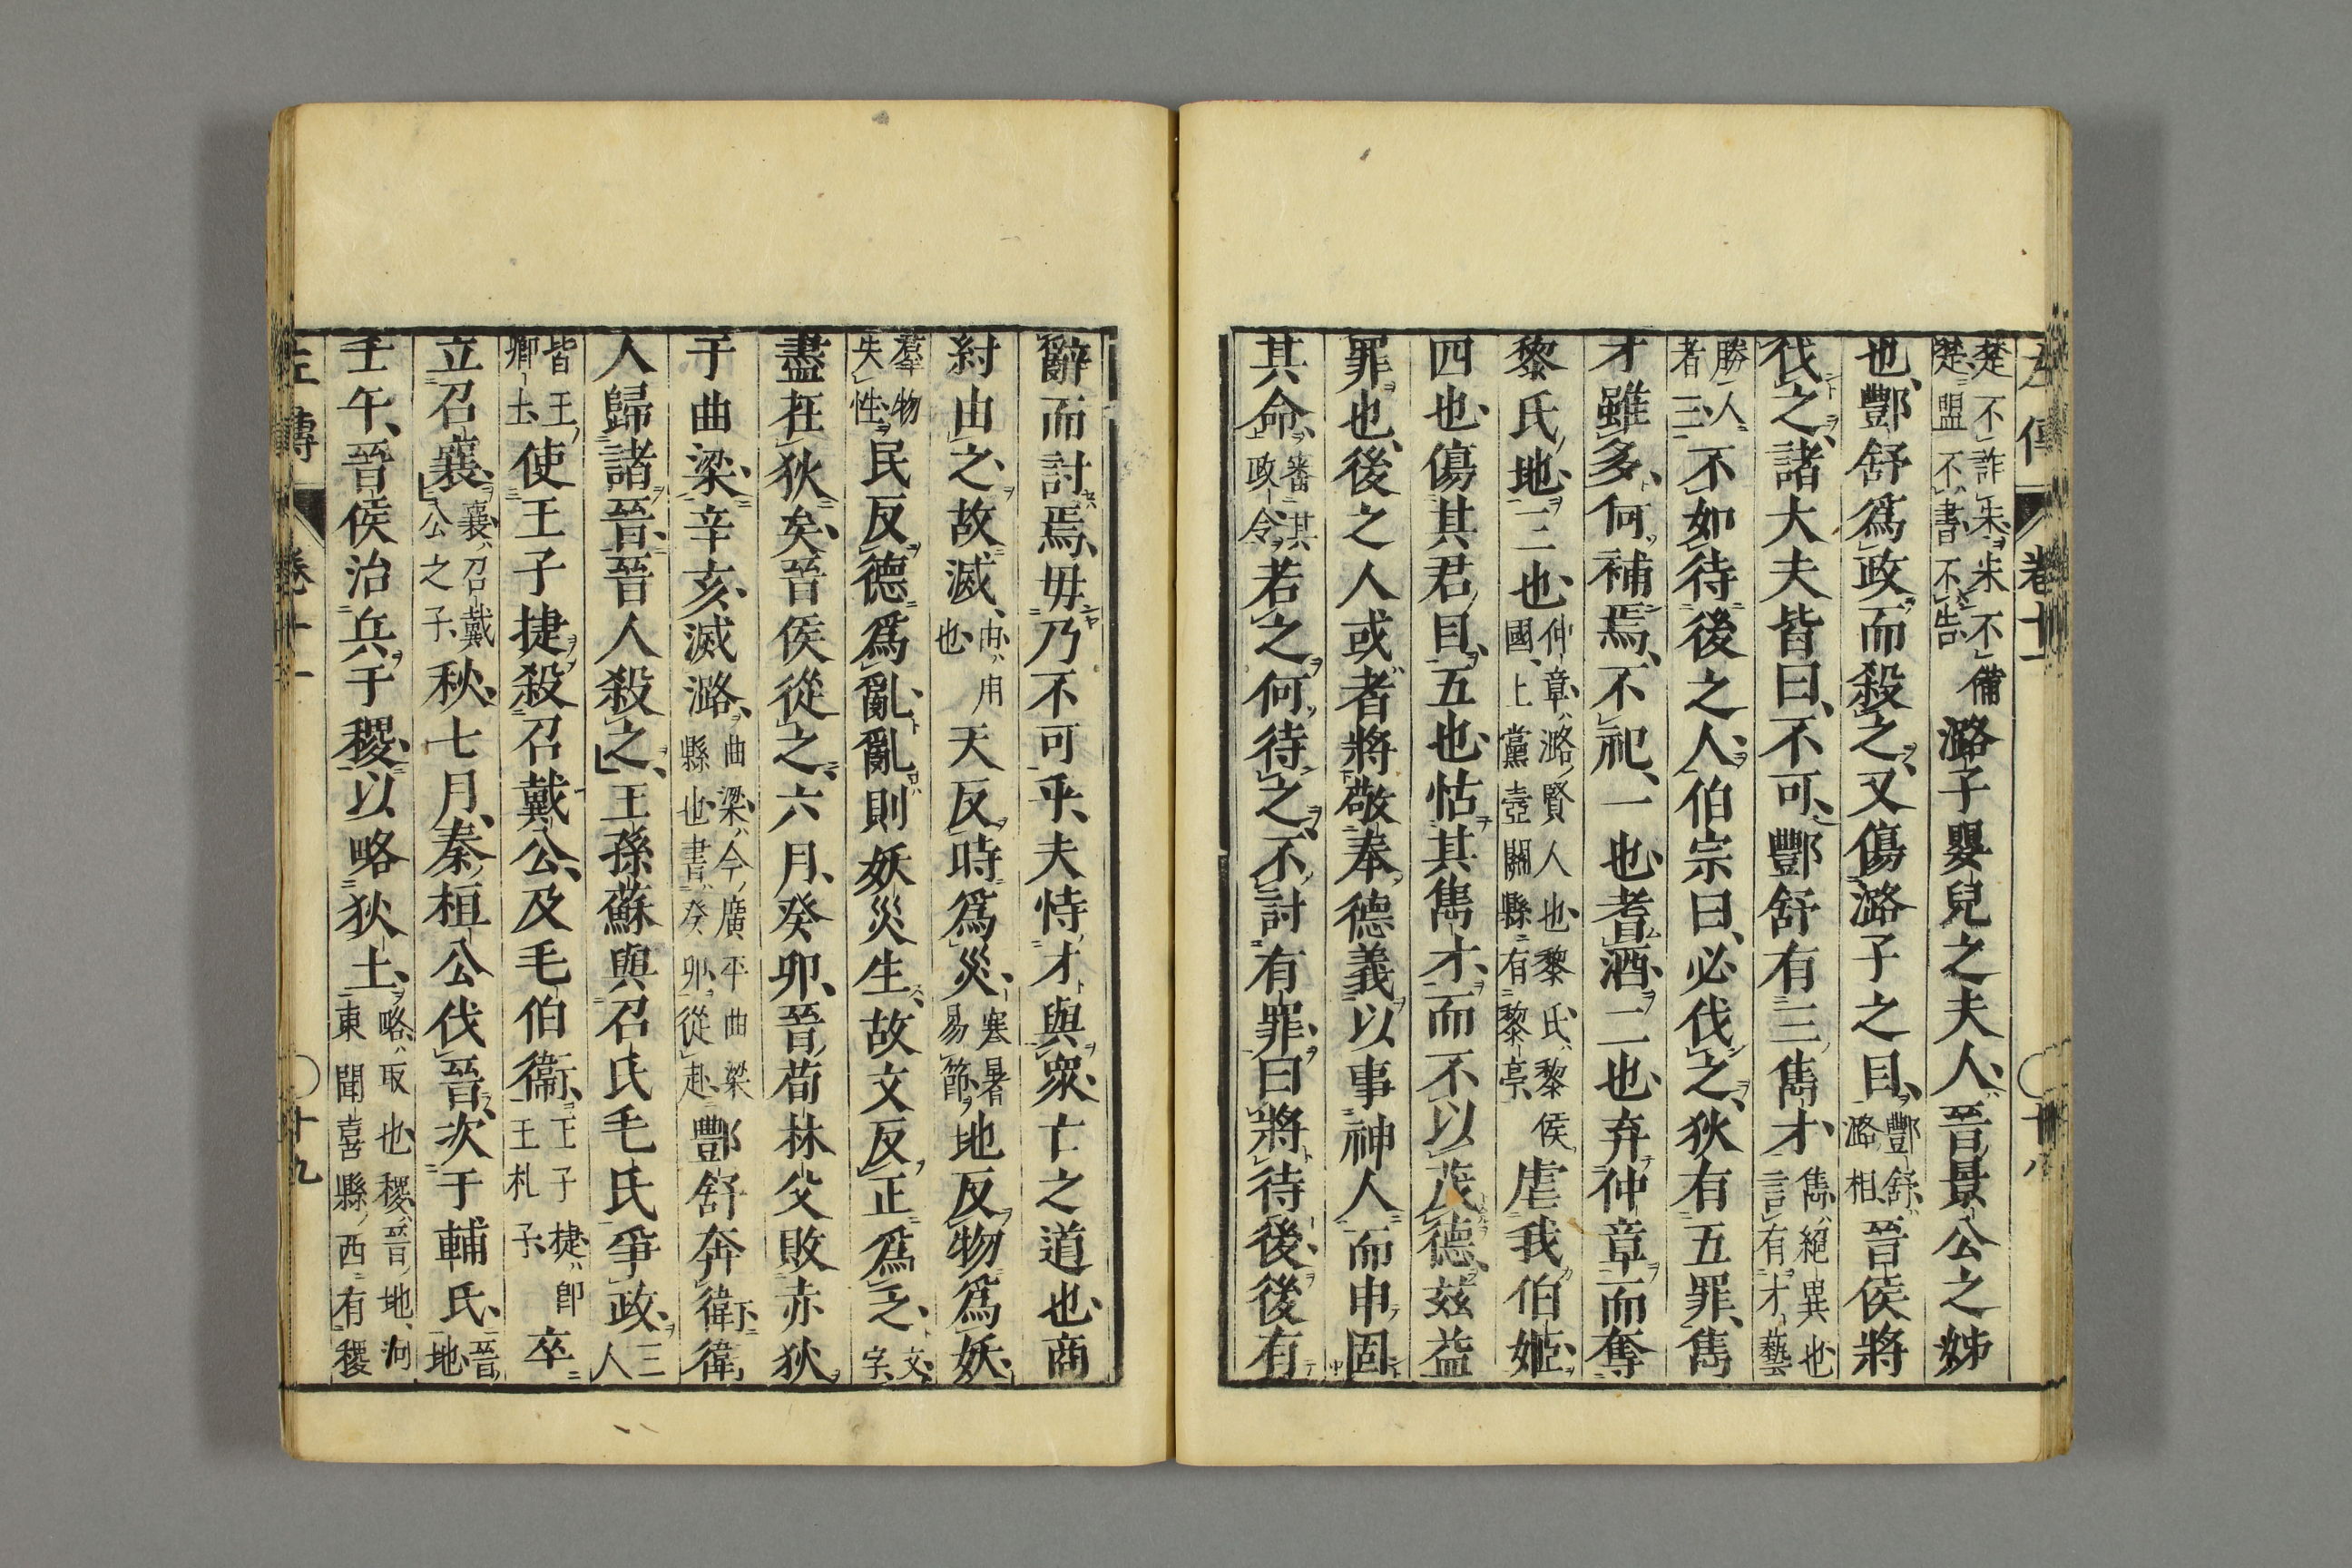 左傳 卷十一 十八
楚不詐宋宋不備楚盟不書不告潞子嬰兒之夫人晉景公之姊
也酆舒爲政而殺之又傷潞子之目酆舒潞相晉侯將
伐之諸大夫皆曰不可酆舒有三雋才雋絕異也言有才藝
勝人者三不如待後之人伯宗曰必伐之狄有五罪雋
才雖多何補焉不祀一也耆酒二也弃仲章而奪
黎氏地三也仲章潞賢人也黎氏黎侯國上黨壺關縣有黎亭虐我伯姬
四也傷其君目五也怙其雋才而不以茂德茲益
罪也後之人或者將敬奉德義以事神人而申固
其命審其政令若之何待之不討有罪曰將待後後有
辭而討焉毋乃不可乎夫恃才與眾亡之道也商
紂由之故滅由用也天反時爲災寒暑易節地反物爲妖
羣物失性民反德爲亂亂則妖災生故文反正爲乏文字
盡在狄矣晉侯從之六月癸卯晉荀林父敗赤狄
于曲梁辛亥滅潞曲梁今廣平曲梁縣也書癸卯從赴酆舒奔衛衛
人歸諸晉晉人殺之王孫蘇與召氏毛氏爭政三人
皆王卿士使王子捷殺召戴公及毛伯衞王子捷即王札子卒
立召襄襄召戴公之子秋七月秦桓公伐晉次于輔氏晉地
壬午晉侯治兵于稷以略狄土略取也稷晉地河東聞喜縣西有稷
左傳 卷十一 十九